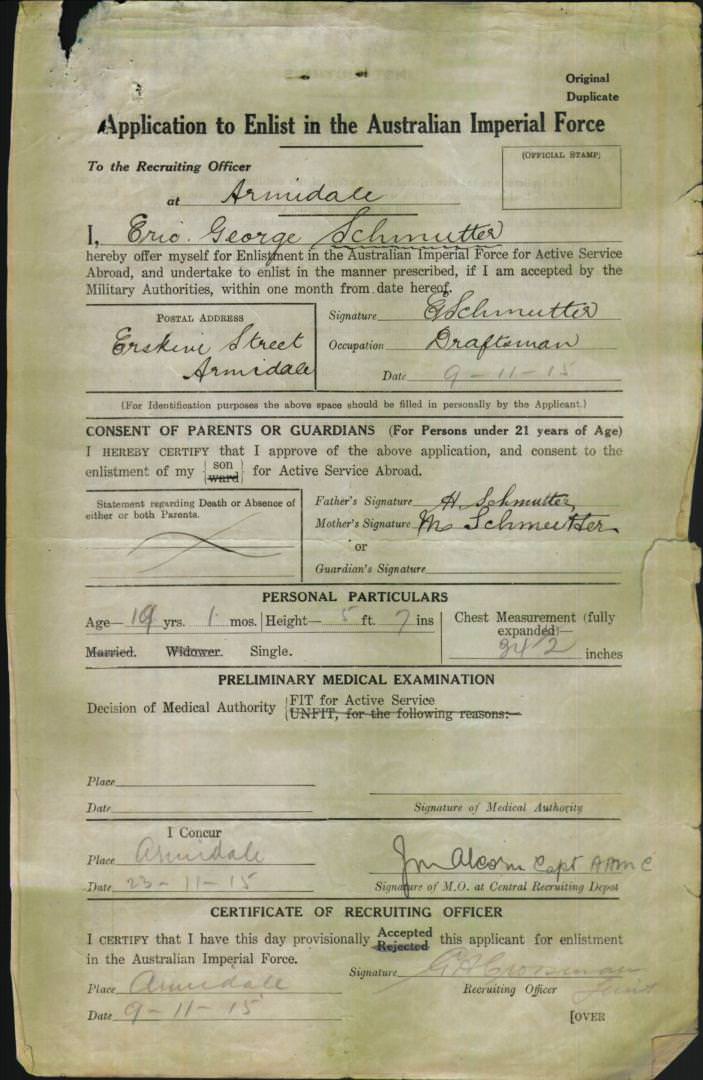 Original
Duplicate
Application to Enlist in the Australian Imperial Force
(OFFICIAL STAMP)
To the Recruiting Officer
at Armidale
I, Eric George Schmutter
hereby offer myself for Enlistment in the Australian Imperial Force for Active Service
Abroad, and undertake to enlist in the manner prescribed, if I am accepted by the
Military Authorities, within one month from date hereof.
POSTAL ADDRESS
Erskine Street
Armidale
Signature EGSchmutter
Occupation Draftsman
Date 9-11-15
(For Identification purposes the above space should be filled in personally by the Applicant.)
CONSENT OF PARENTS OR GUARDIANS (For Persons under 21 years of Age)
I HEREBY CERTIFY that I approve of the above application, and consent to the
enlistment of my {son ward} for Active Service Abroad.
Statement regarding Death or Absence of
either or both Parents.
Father's Signature H. Schmutter
Mother's Signature M Schmutter
or
Guardian's Signature
PERSONAL PARTICULARS
Age— 19 yrs. 1 mos. Height— 5 ft. 7 ins
Chest Measurement (fully
expanded)—
34 1/2 inches
Married. Widower. Single.
PRELIMINARY MEDICAL EXAMINATION
Decision of Medical Authority {FIT for Active Service
UNFIT, for the following reasons:—
Place
Date
Signature of Medical Authority
I Concur
Place Armidale
Date 23-11-15
Jm Alcorn Capt AAMC
Signature of M.O. at Central Recruiting Depot
CERTIFICATE OF RECRUITING OFFICER
I CERTIFY that I have this day provisionally Accepted Rejected this applicant for enlistment
in the Australian Imperial Force.
Signature Crossman
Place Armidale
Recruiting Officer
Date 9-11-15
[OVER